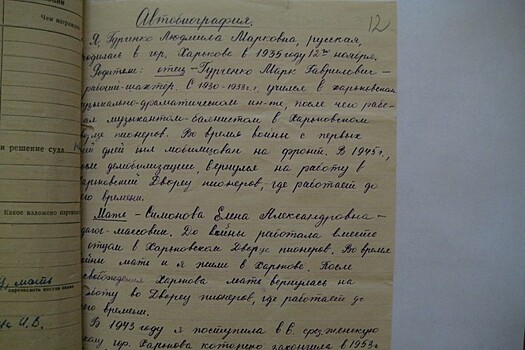 Чем награжд
и решение суда
Какое взложено партвзыск
12
Автобиография.
Я, Гурченко Людмила Марковна, русская,
родилась в гор. Харькове в 1935 году 12го ноября.
Родители: отец – Гурченко Марк Гаврилович –
рабочий-шахтер. С 1930-1933 г. учился в харьковском
музыкально-драматическом ин-те, после чего рабо-
тал музыкантом-баянистом в Харьковском
пионеров. Во время войны с первых
дней был мобилизован на фронт. В 1945 г.,
демобилизации, вернулся на работу в
Харьковский Дворец пионеров, где работает до
его времени.
Мать – Симонова Елена Александровна –
педагог-массовик. До войны работала вместе
с отцом в Харьковском Дворце пионеров. Во время
войны мать и я жили в Харькове. После
освобождения Харькова мать вернулась на
работу во Дворец пионеров, где работает до
его времени.
В 1943 году я поступила в 6. сред. женскую
школу гор. Харькова которую закончила в 1953 г